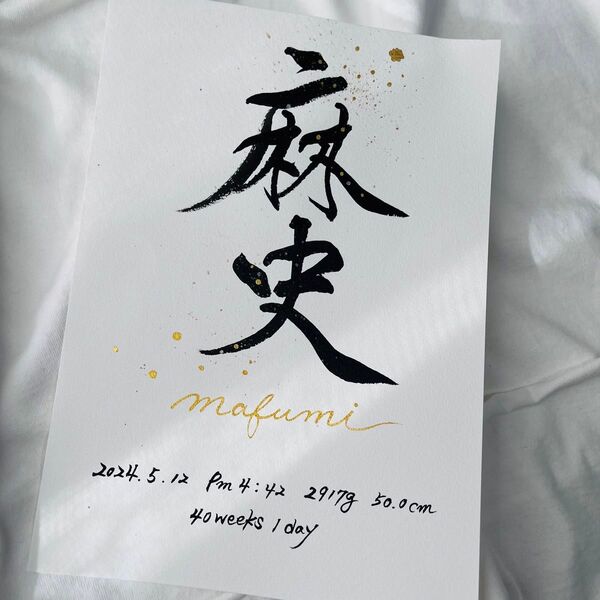 麻史
mafumi
2024.5.12 Pm 4:42 2917g 50.0cm
40weeks 1day